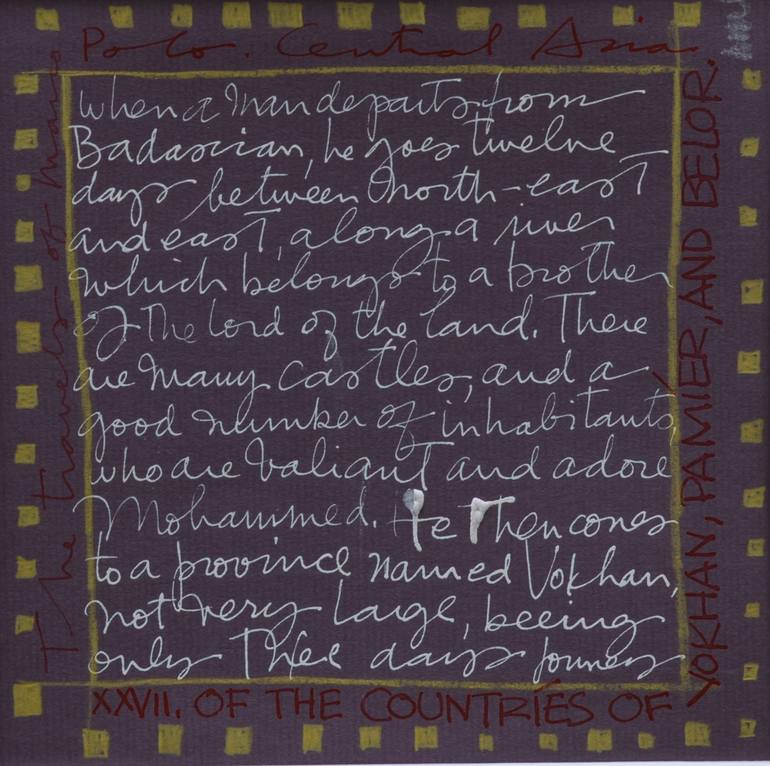 The travels of Marco
Polo. Central Asia
when a man departs from
Badascian, he goes twelve
days between north-east
and east, along a river
which belongs to a brother
of the lord of the land. There
are many castles, and a
good number of inhabitants,
who are valiant and adore
Mohammed. He then comes
to a province named Vokhan,
not very large, beeing
only three days journey
XXVII. OF THE COUNTRÍES OF
VOKHAN, PAMÍER, AND BELOR.